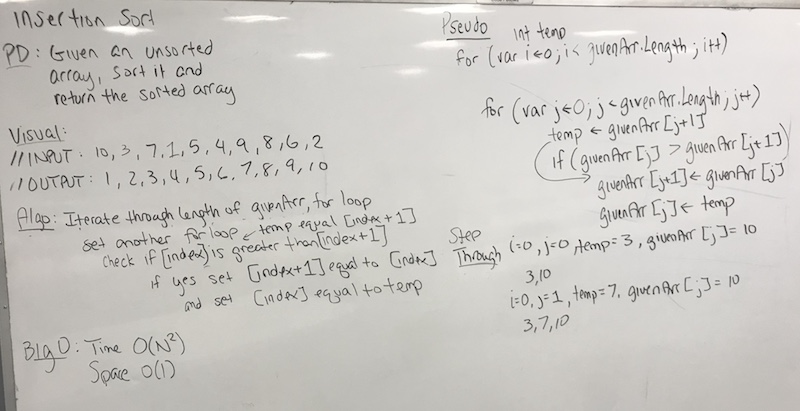 Insertion Sort
PD: Given an unsorted
array, sort it and
return the sorted array
Visual:
//INPUT: 10, 3, 7, 1, 5, 4, 9, 8, 6, 2
//OUTPUT: 1, 2, 3, 4, 5, 6, 7, 8, 9, 10
Algo: Iterate through length of givenArr, for loop
set another for loop ← temp equal [index+1]
check if [index] is greater than [index+1]
if yes set [index+1] equal to [index]
and set [index] equal to temp
Big O: Time O(N²)
Space O(1)
Pseudo
int temp
for (var i←0; i< givenArr.Length; i++)
for (var j←0; j<givenArr.Length; j++)
temp ← givenArr[j+1]
if (givenArr[j] > givenArr[j+1])
givenArr[j+1] ← givenArr[j]
givenArr[j] ← temp
Step Through
i=0, j=0, temp=3, givenArr[j]=10
3,10
i=0, j=1, temp=7, givenArr[j]=10
3,7,10